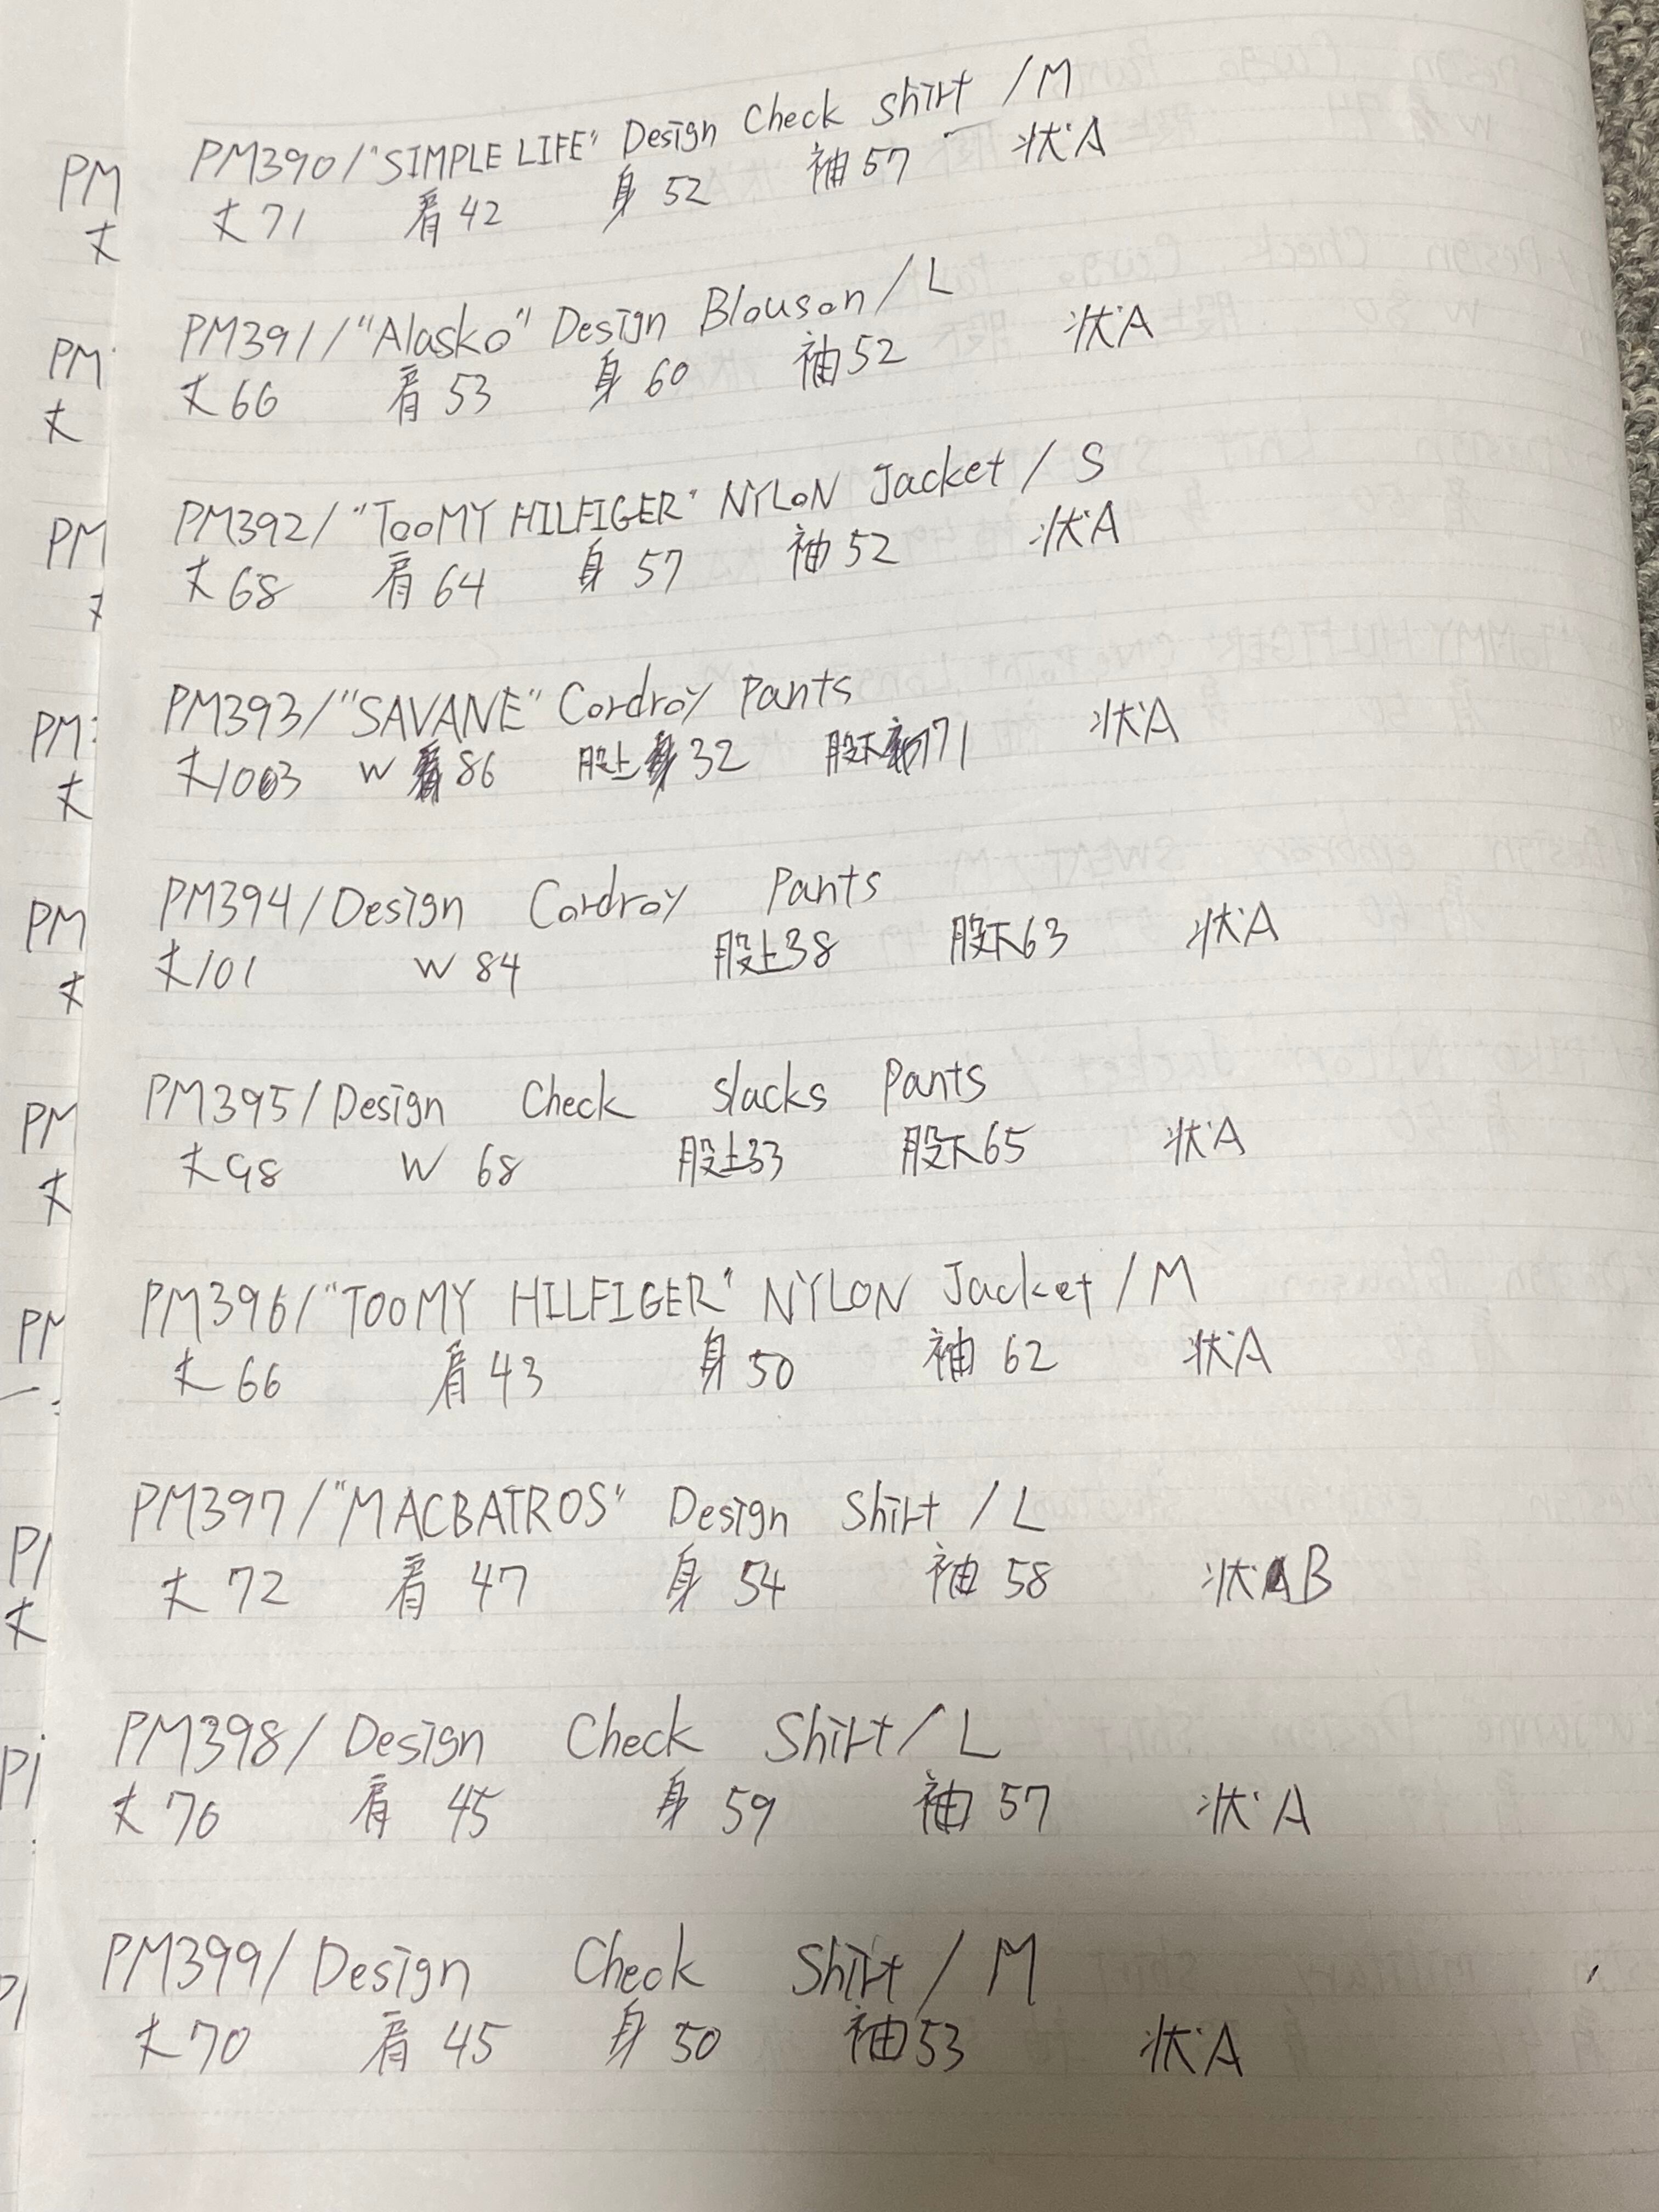 PM390/"SIMPLE LIFE" Design Check Shirt /M
丈71 肩42 身52 袖57 状A
PM391/"Alasko" Design Blouson/L
丈66 肩53 身60 袖52 状A
PM392/"TooMY HILFIGER" NYLON Jacket/S
丈68 肩64 身57 袖52 状A
PM393/"SAVANE" Cordroy Pants
丈103 W 86 股上32 股下71 状A
PM394/Design Cordroy Pants
丈101 W 84 股上38 股下63 状A
PM395/Design Check slacks Pants
丈98 W 68 股上33 股下65 状A
PM396/"TOOMY HILFIGER" NYLON Jacket/M
丈66 肩43 身50 袖62 状A
PM397/"MACBATROS" Design Shirt /L
丈72 肩47 身54 袖58 状B
PM398/Design Check Shirt/L
丈76 肩45 身59 袖57 状A
PM399/Design Check Shirt/M
丈70 肩45 身50 袖53 状A